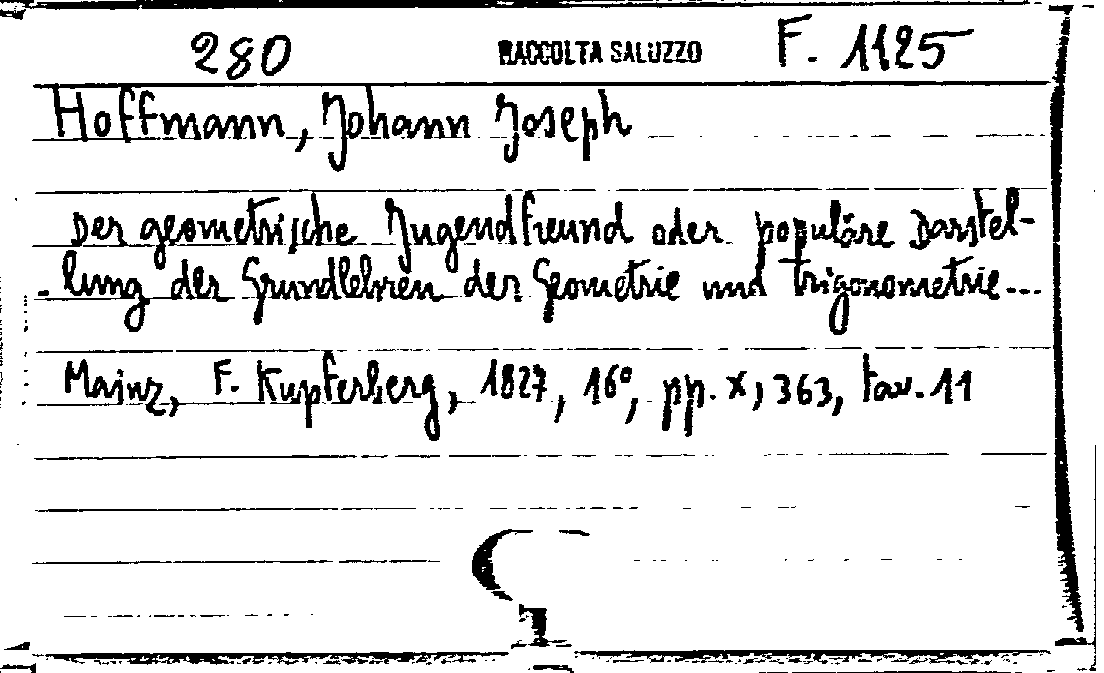 280 RACCOLTA SALUZZO F. 1125
Hoffmann, Johann Joseph
Der geometrische Jugendfreund oder populäre Darstel-
-lung der Grundlehren der Geometrie und trigonometrie...
Mainz, F. Kupferberg, 1827, 16°, pp. X, 363, tav. 11